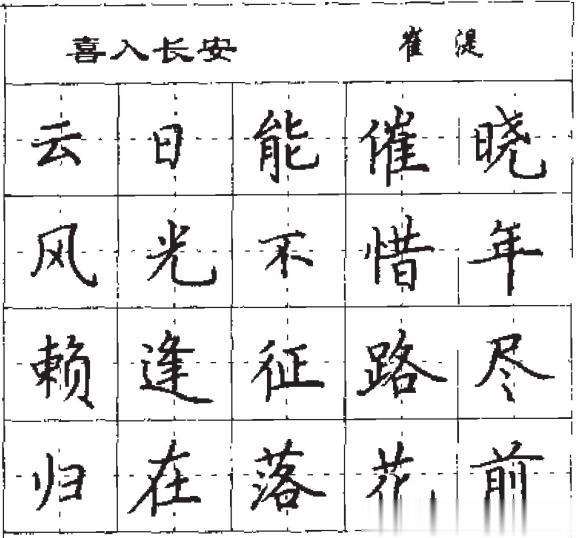 喜入长安 崔湜
云日能催晓
风光不惜年
赖逢征路尽
归在落花前